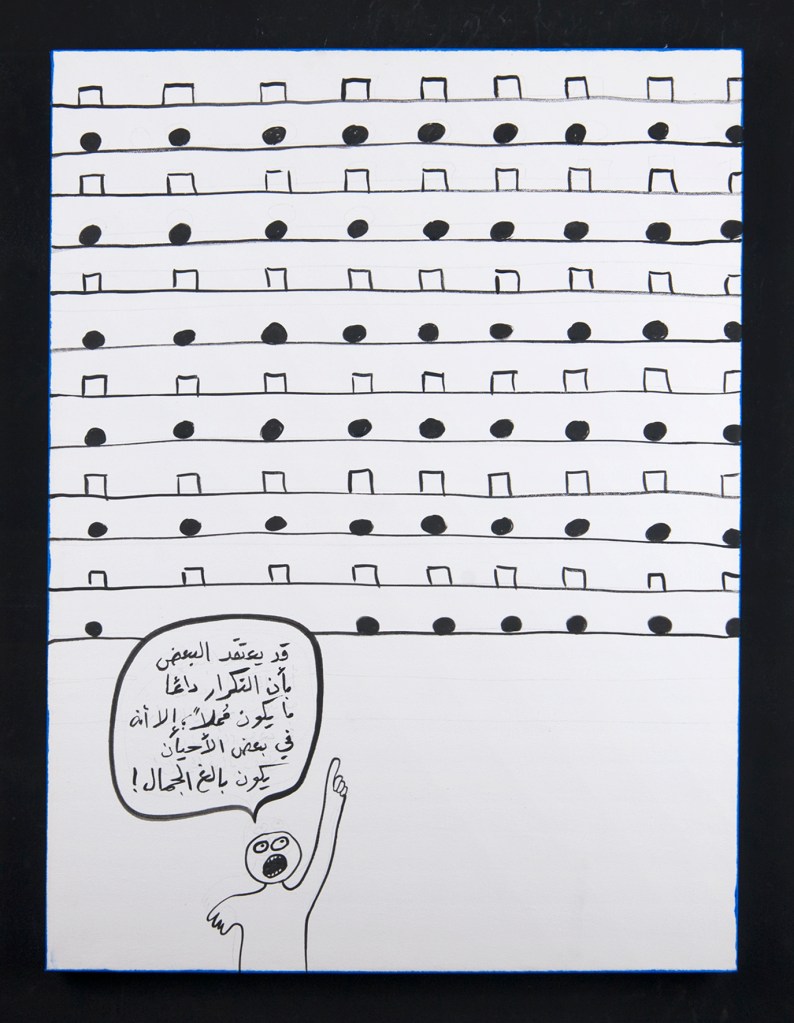 قد يعتقد البعض
بأن التكرار دائمًا
ما يكون مُملاً؛ إلا أنه
في بعض الأحيان
يكون بالغ الجمال!